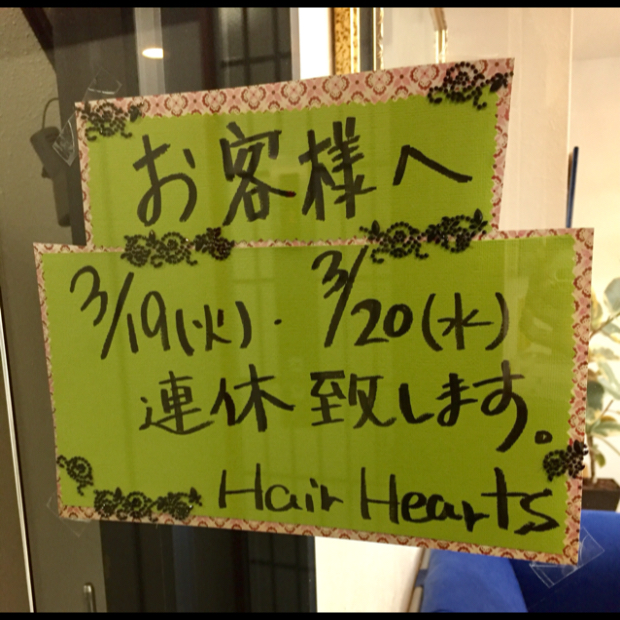 お客様へ
3/19(火)・3/20(水)
連休致します。
Hair Hearts